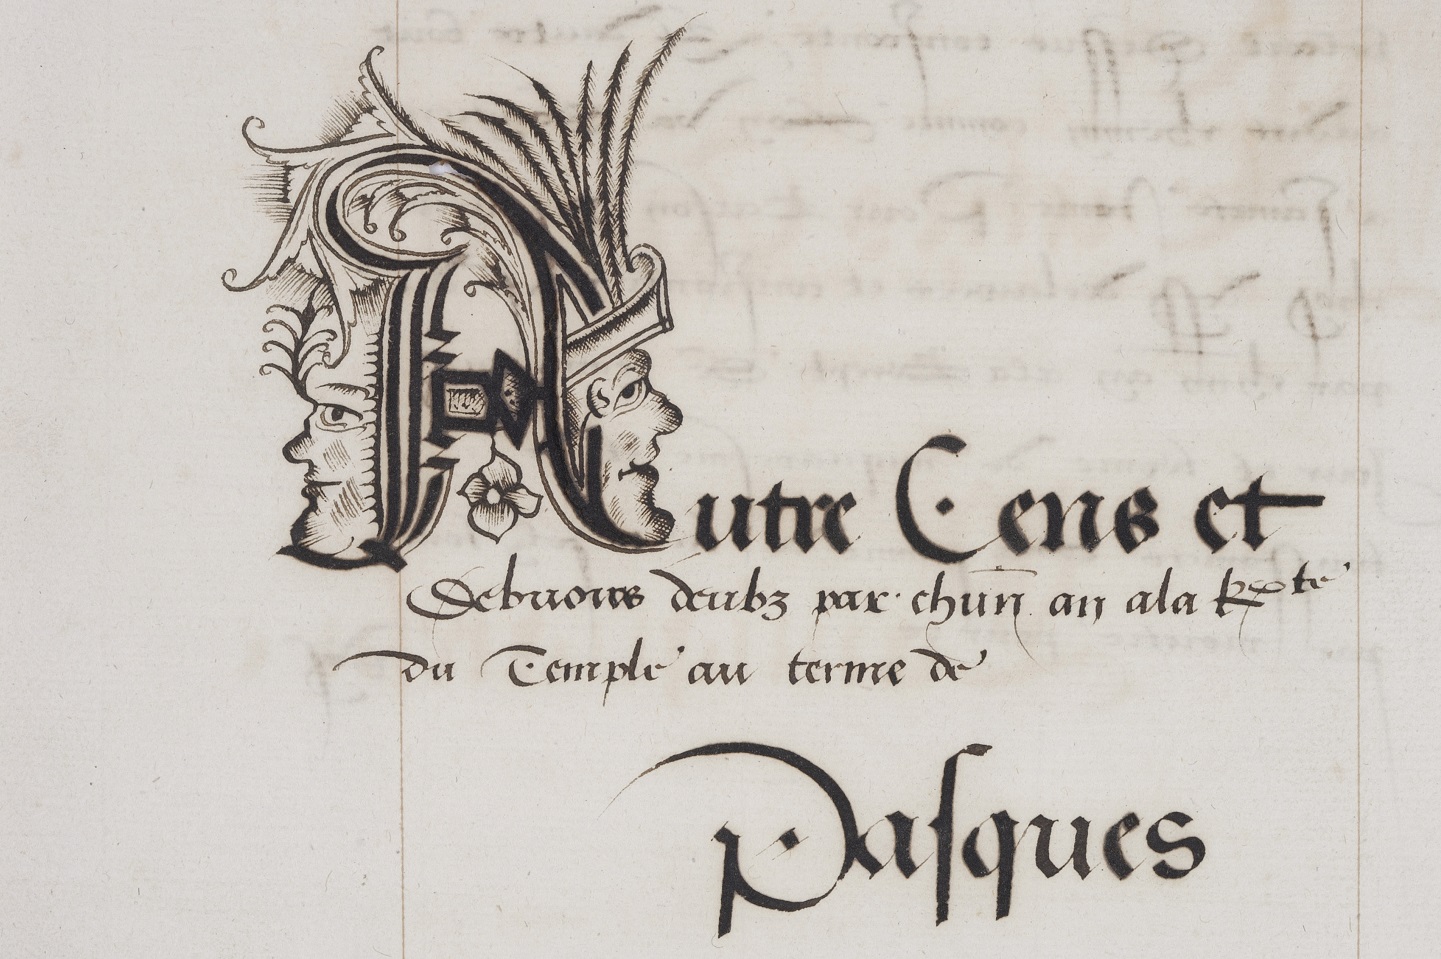 Autre Cens et
debuoirs deubz par chūn an a la Rpte
du Temple au terme de
Pasques